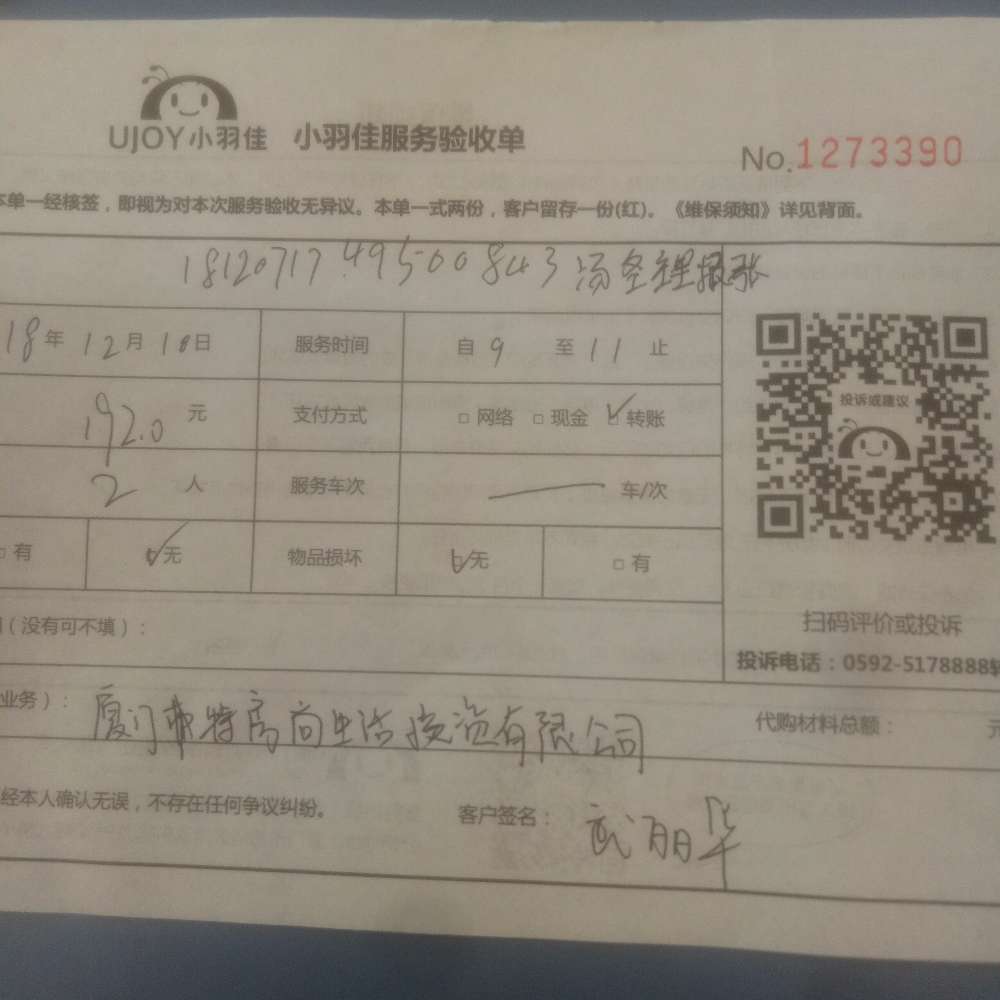 UJOY小羽佳 小羽佳服务验收单
No.1273390
本单一经核签，即视为对本次服务验收无异议。本单一式两份，客户留存一份(红)。《维保须知》详见背面。
1812071749500843汤经理报账
18年12月10日 服务时间 自9 至11止
192.0元 支付方式 □网络 □现金 ☑转账
2人 服务车次 — 车/次
□有 ☑无 物品损坏 ☑无 □有
投诉或建议
扫码评价或投诉
（没有可不填）：
投诉电话：0592-5178888转
业务）： 厦门市特房尚生活投资有限公司
代购材料总额： 元
经本人确认无误，不存在任何争议纠纷。 客户签名： 武丽华